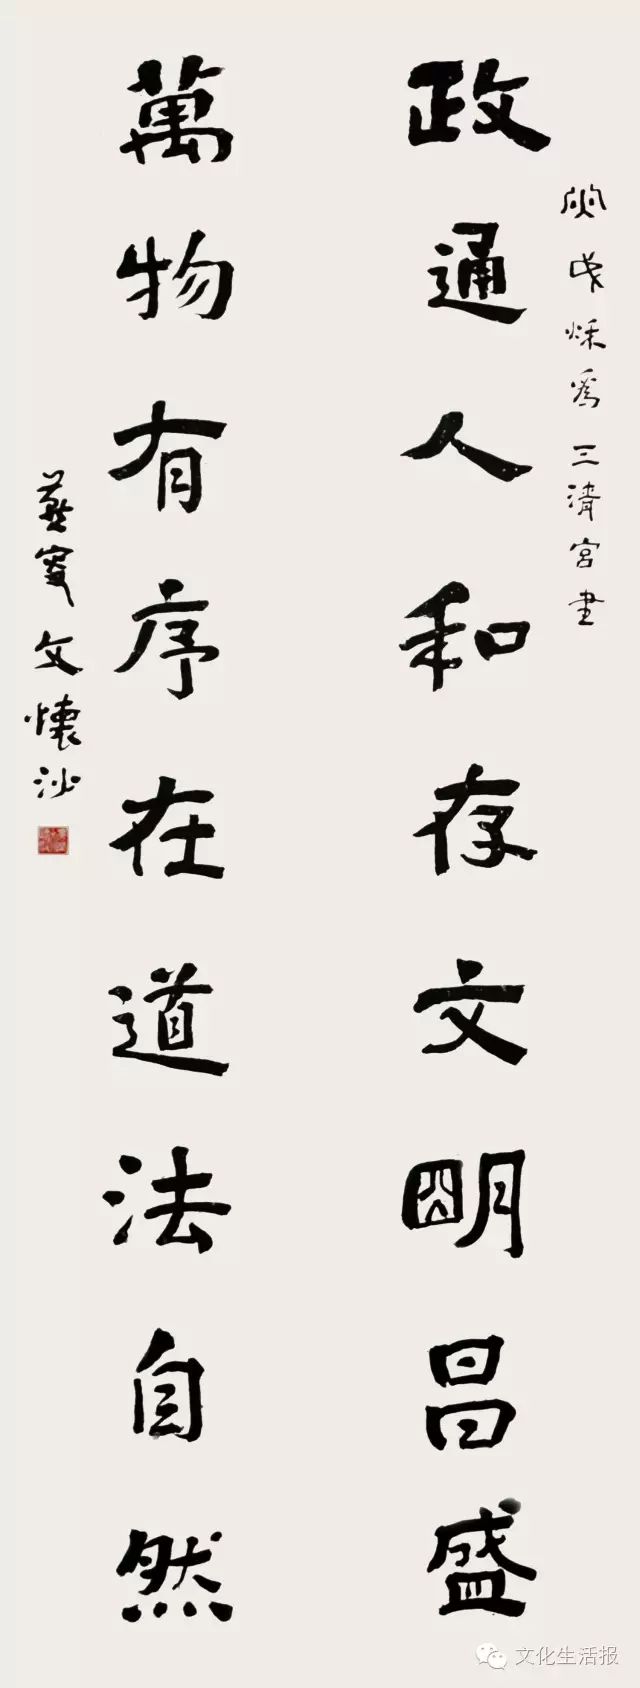 戌秌為三清宮書
政通人和存文明昌盛
萬物有序在道法自然
燕叟文懷沙
文化生活报